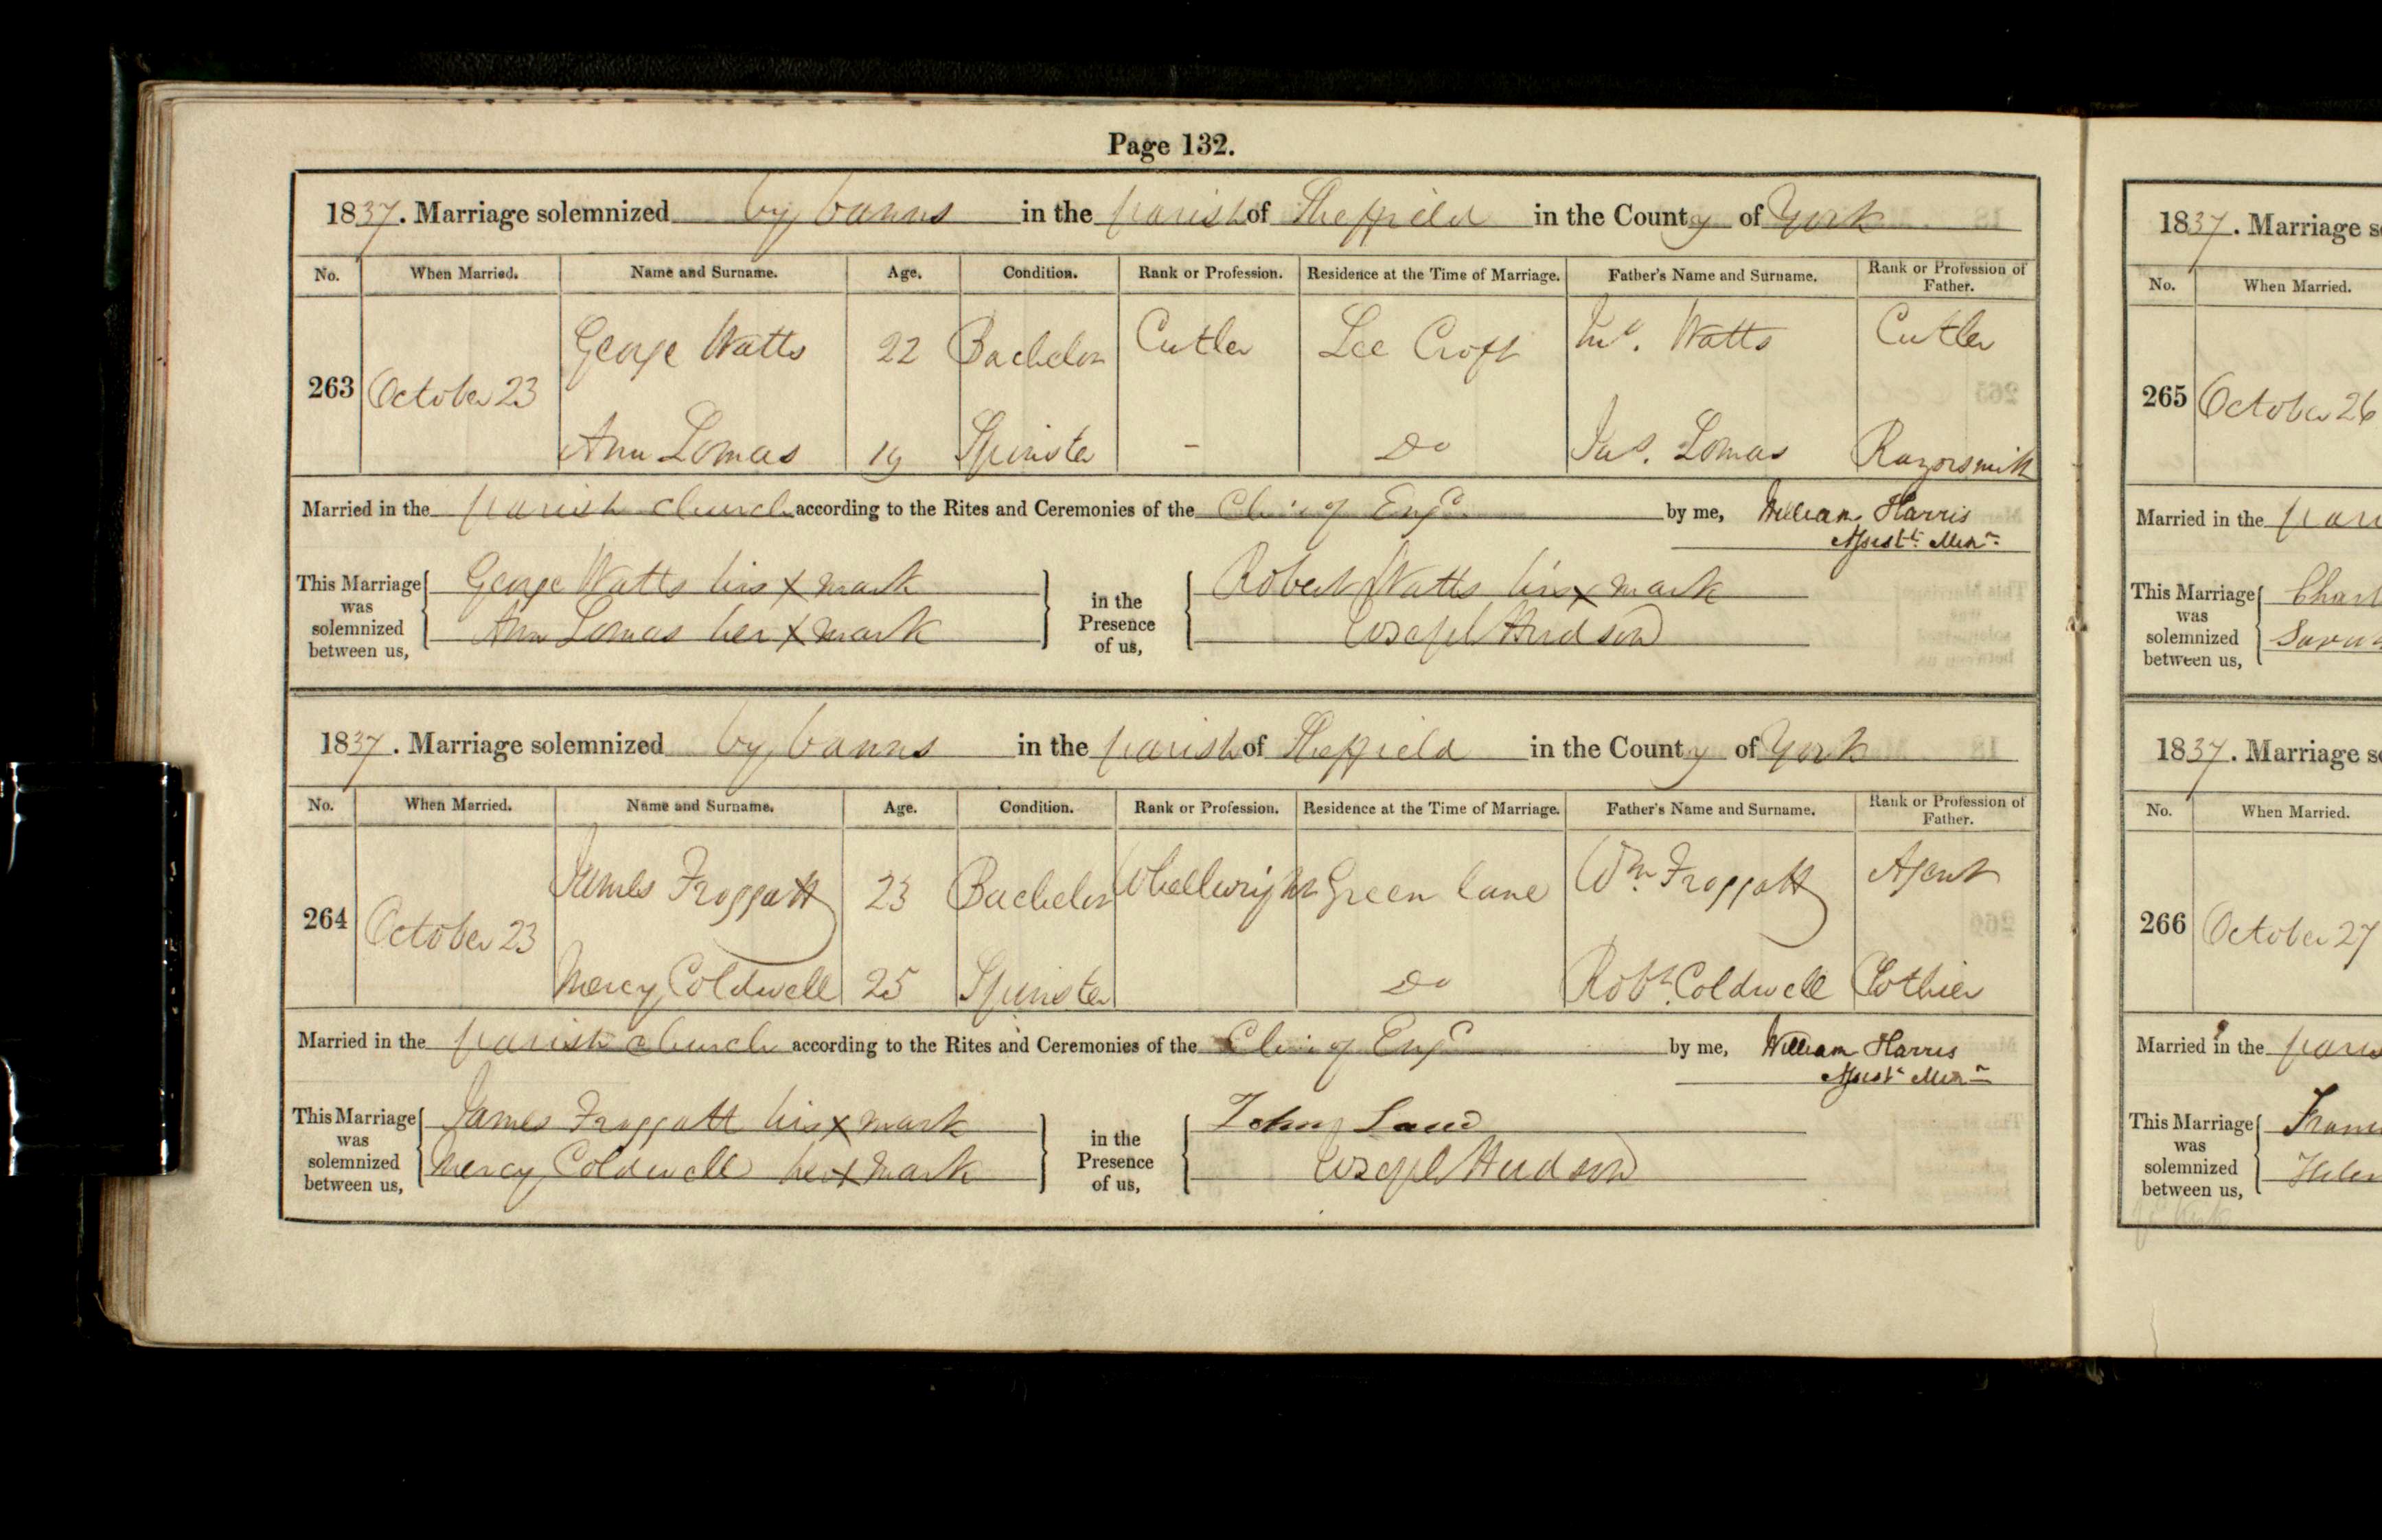 Page 132.
1837. Marriage solemnized by banns in the parish of Sheffield in the County of York
No. When Married. Name and Surname. Age. Condition. Rank or Profession. Residence at the Time of Marriage. Father's Name and Surname. Rank or Profession of Father.
George Watts 22 Bachelor Cutler Lee Croft Jno. Watts Cutler
263 October 23
Ann Lomas 19 Spinster - Do Jas. Lomas Razorsmith
Married in the parish church according to the Rites and Ceremonies of the Ch: of Engd by me, William Harris
Assistt. Minr.
This Marriage was solemnized between us, George Watts his x mark
Ann Lomas her x mark
in the Presence of us, Robert Watts his x mark
Joseph Hudson
1837. Marriage solemnized by banns in the parish of Sheffield in the County of York
No. When Married. Name and Surname. Age. Condition. Rank or Profession. Residence at the Time of Marriage. Father's Name and Surname. Rank or Profession of Father.
James Froggatt 23 Bachelor Wheelwright Green lane Wm. Froggatt Agent
264 October 23
Mercy Coldwell 25 Spinster Do Robt. Coldwell Clothier
Married in the parish church according to the Rites and Ceremonies of the Ch: of Engd by me, William Harris
Assistt. Minr.
This Marriage was solemnized between us, James Froggatt his x mark
Mercy Coldwell her x mark
in the Presence of us, John
Joseph Hudson
1837. Marriage
No. When Married.
265 October 26
Married in the
This Marriage was solemnized between us,
1837. Marriage
No. When Married.
266 October 27
Married in the
This Marriage was solemnized between us,